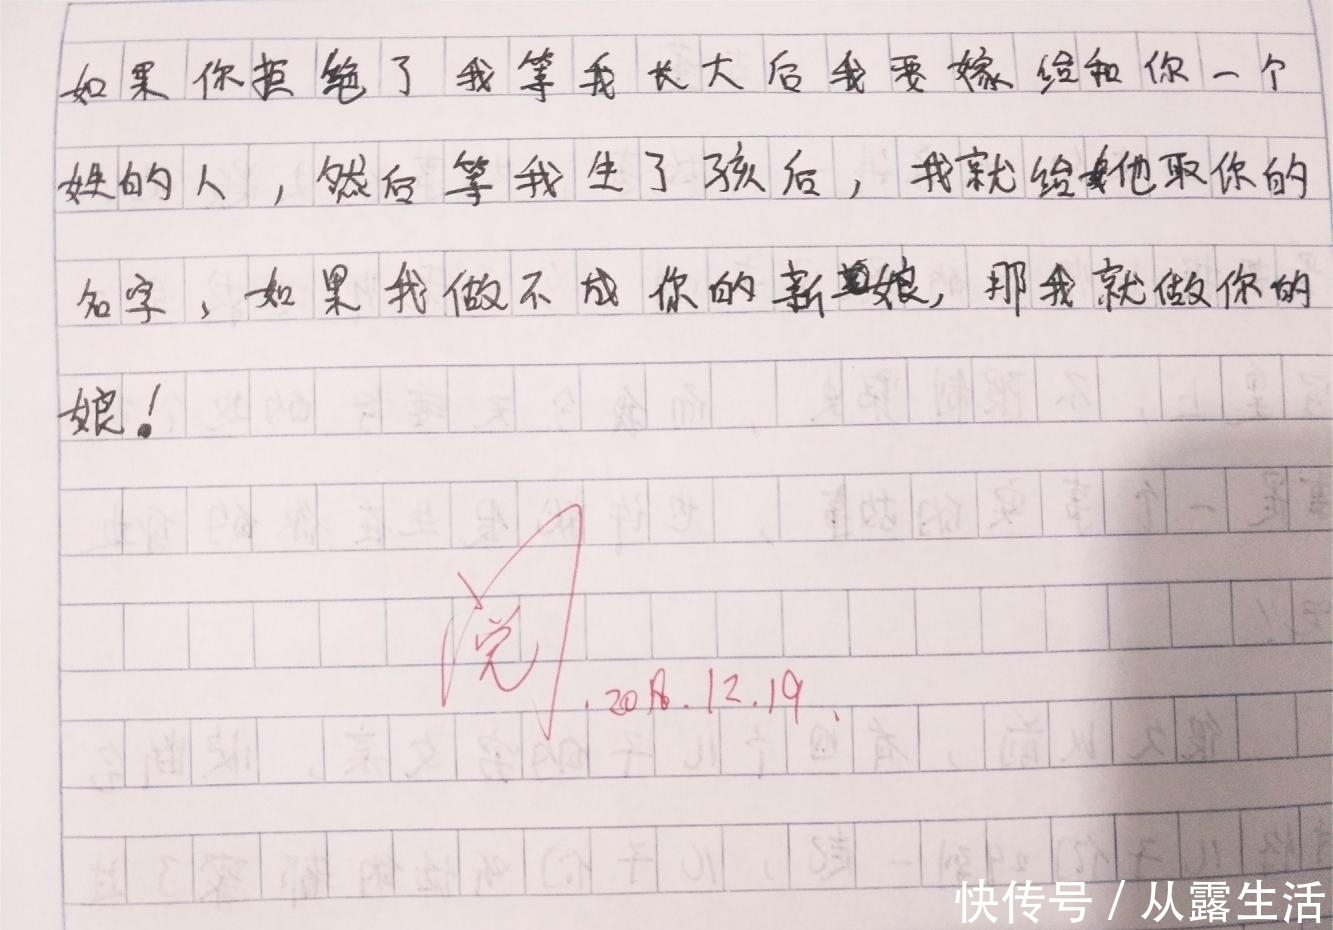 如果你拒绝了我等我长大后我要嫁给和你一个
姓的人，然后等我生了孩后，我就给他取你的
名字，如果我做不成你的新娘，那我就做你的
娘！
阅
.2018.12.19.
快传号/从露生活